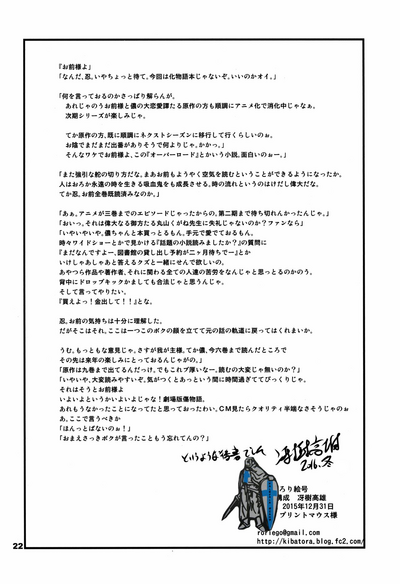 『お前様よ』
「なんだ、忍。いやちょっと待て。今回は化物語本じゃないぞ、いいのかオイ。」
「何を言っておるのかさっぱり解らんが、
あれじゃのうお前様と儂の大恋愛譚たる原作の方も順調にアニメ化で消化中じゃなぁ。
次期シリーズが楽しみじゃ。
てか原作の方、既に順調にネクストシーズンに移行して行くらしいのぉ。
お陰でまだまだ出番がありそうで何よりじゃ、かかっ。
そんなワケでお前様よ、この『オーバーロード』とかいう小説、面白いのぉー。」
「また強引な舵の切り方だな。まあお前もようやく空気を読むということができるようになったか。
人はおろか永遠の時を生きる吸血鬼をも成長させる、時の流れというのはけだし偉大だな。
てか忍、お前全巻既読済みなのか。」
「あぁ、アニメが三巻までのエピソードじゃったからの、第二期まで待ち切れんかったんじゃ。」
「おいっ。それは偉大なる御方たる丸山くがね先生に失礼じゃないのか？ファンなら」
「いやいやいや、儂ちゃんと本買っとるもん。手元で愛でておるもん。
時々ワイドショーとかで見かける「話題の小説読みましたか？」の質問に
『まだなんですよー、図書館の貸し出し予約が二ヶ月待ちでー』とか
いけしゃあしゃあと答えるクズと一緒にせんで欲しいの。
あやつら作品や著作者、それに関わる全ての人達の苦労をなんじゃと思っとるのかのう。
背中にドロップキックかましても合法じゃと思うんじゃ。
そして言ってやりたい。
『買えよっ！金出して！！』とな。
忍。お前の気持ちは十分に理解した。
だがそこはそれ、ここは一つこのボクの顔を立てて元の話の軌道に戻ってはくれまいか。
うむ。もっともな意見じゃ。さすが我が主様。てか儂、今六巻まで読んだところで
その先は来年の楽しみにとっておるんじゃがの。」
「原作は九巻まで出てるんだっけ。でもこれ厚いなー、読むの大変じゃ無いのか？」
「いやいや、大変読みやすいぞ。気がつくとあっという間に時間過ぎててびっくりじゃ。
それはそうとお前様よ
いよいよというかいよいよじゃな！劇場版傷物語。
あれもうなかったことになってたと思っておったわい。CM見たらクオリティ半端なさそうじゃのぉ
あ、ここで言うべきか
「ほんっとぱないのぉ！」
「おまえさっきボクが言ったこともう忘れてんの？」
ろり絵号
構成 冴樹高雄
2015年12月31日
プリントマウス様
roriego@gmail.com
http://kibatora.blog.fc2.com/
22